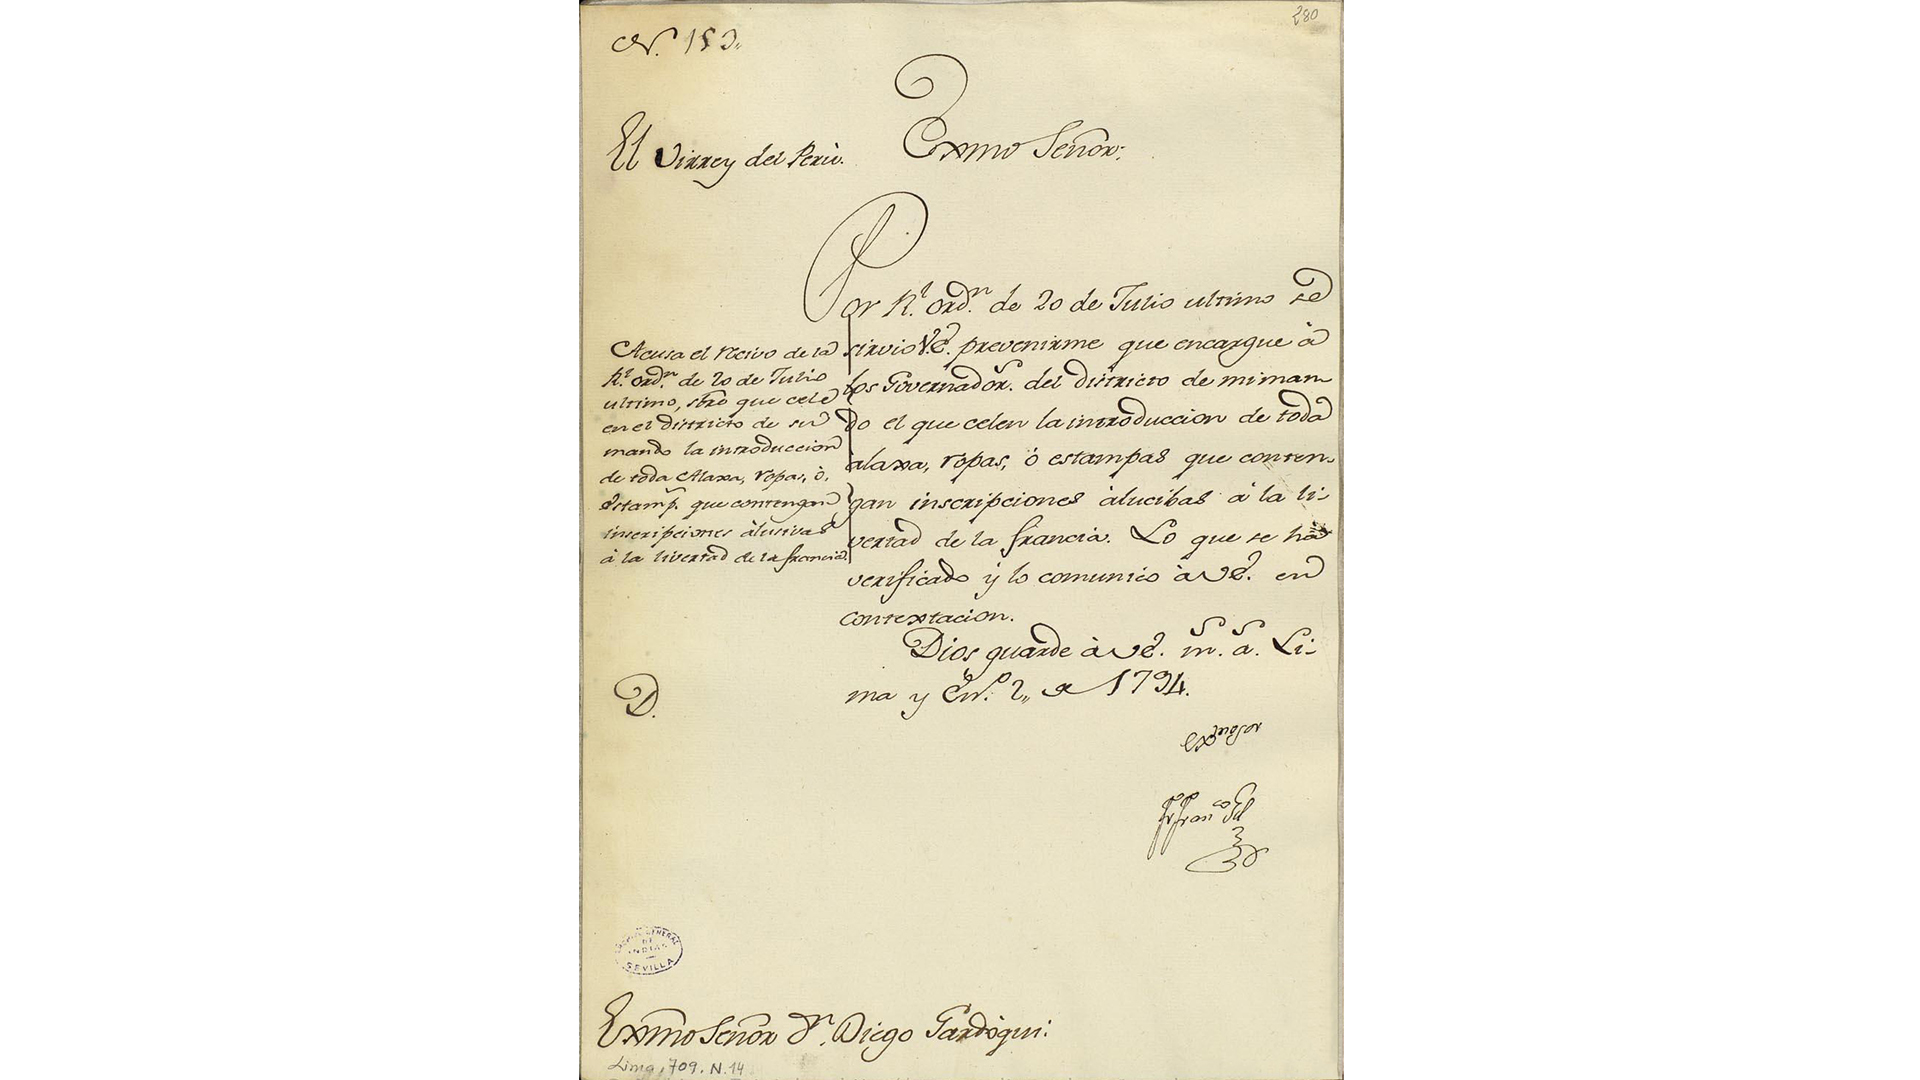 280
N. 153.
El Virrey del Perù.
Exmo Señor:
Acusa el recivo de la
Rl. ordn. de 20 de Julio
ultimo, sbre que cele
en el districto de su
mando la introduccion
de toda Alaxa, ropas, ò
estamps. que contengan
inscripciones àlusivas
à la livertad de la francia.
Por Rl. ordn. de 20 de Julio ultimo se
sirvio V.E. prevenirme que encargue à
los Governadors. del districto de mi man
do el que celen la introduccion de toda
àlaxa, ropas, ò estampas que conten-
gan inscripciones àlucibas à la li-
vertad de la francia. Lo que se ha
verificado y lo comunico à VE. en
contextacion.
Dios guarde à VE. ms. as. Li-
ma y Eno. 2,, de 1794.
Exmo Sor
Fr Franco Gil
D.
ARCHIVO GENERAL
DE
INDIAS
SEVILLA
Exmo Señor Dn. Diego Gardoqui.
Lima, 709, N.14